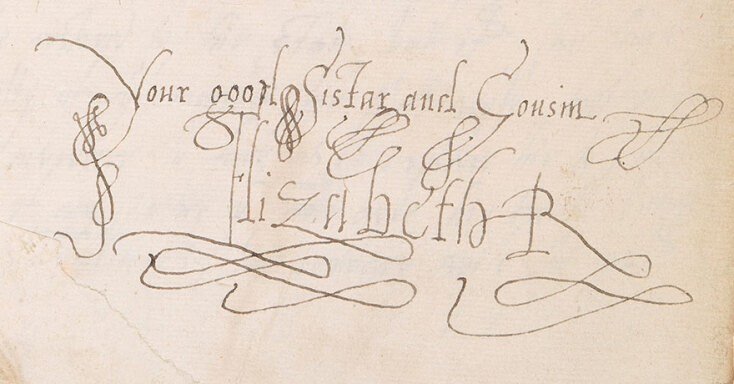 Your good Sistar and Cousin
Elizabeth R